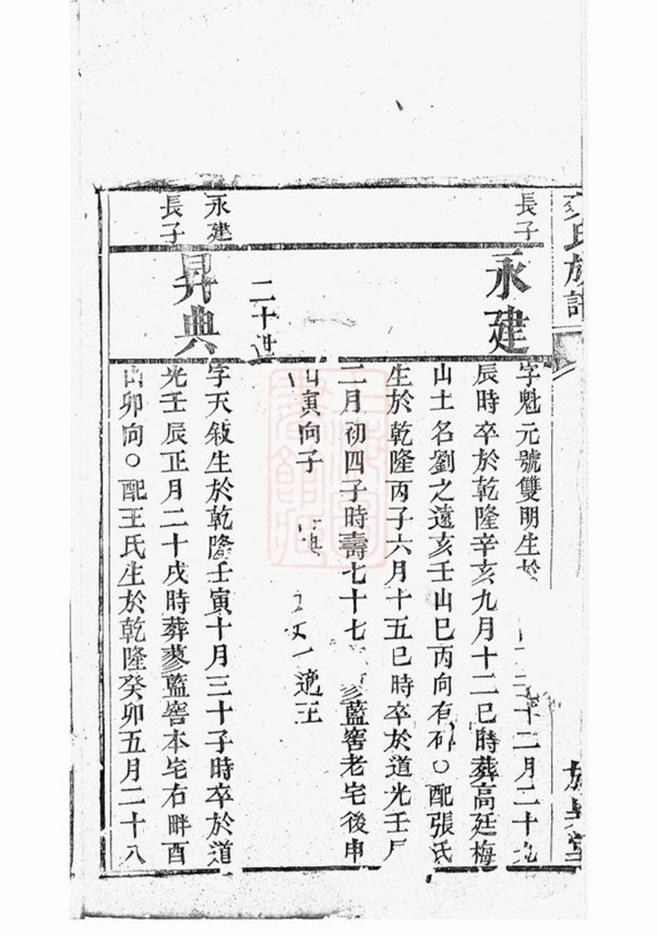 氏族譜
長子
永建
字魁元號雙明生於 十二月二十九
辰時卒於乾隆辛亥九月十二巳時葬高廷梅
山土名劉之遠亥壬山巳丙向有 ○配張氏
生於乾隆丙子六月十五巳時卒於道光壬辰
二月初四子時壽七十七 藍窖老宅後申
山寅向子 一適王
二十世
永建
長子
昇典
字天敍生於乾隆壬寅十月三十子時卒於道
光壬辰正月二十戌時葬蓼藍窖本宅右畔酉
山卯向○配王氏生於乾隆癸卯五月二十八